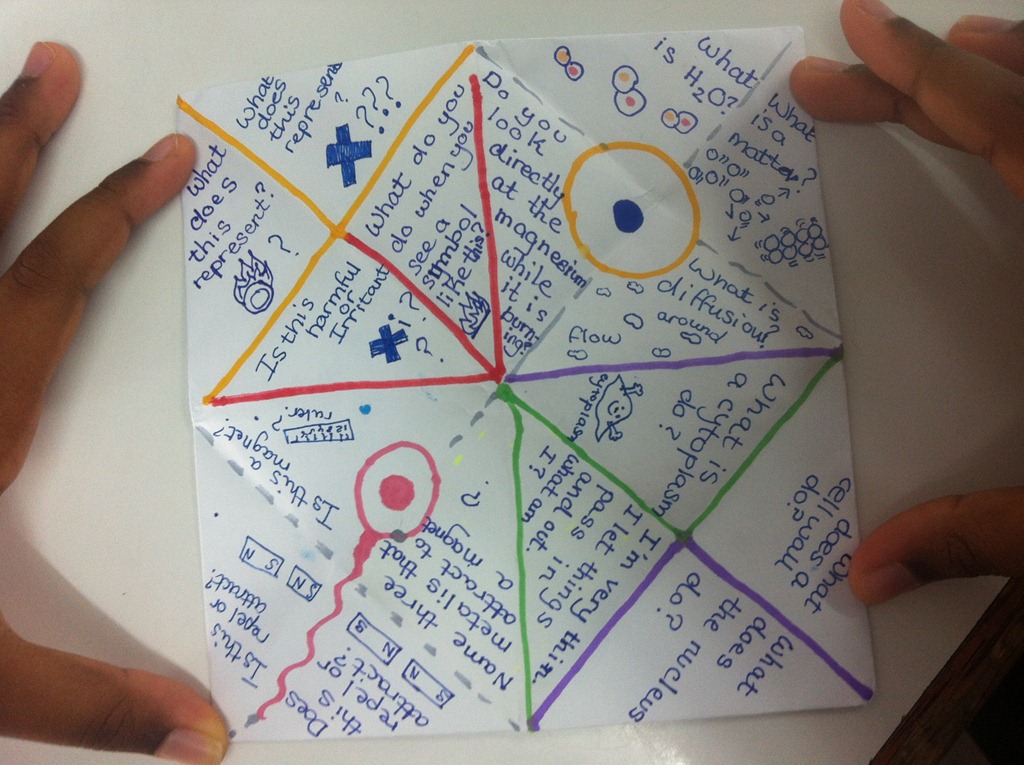 What
does
this
represent
?
???
What
does
this
represent?
?
What do you
do when you
see a
symbol
like this?
Is this
harmful
or
Irritant
i?
?
Do you
look
directly
at the
magnesium
while
it is
burn
ing?
What
is H2O?
What
is a
matter?
What is
diffusion?
flow around
What is
a cytoplasm
do?
cytoplasm
What
does a
cell wall
do?
What
does
the nucleus
do?
I'm very thin.
I let things
pass in
and out.
what am
I?
Name three
metalis that
attract to
a magnet
?
Does
this
repel or
attract?
N S
S N
Is this
repel or
attract?
N S
S N
Is this a
magnet?
ruler?